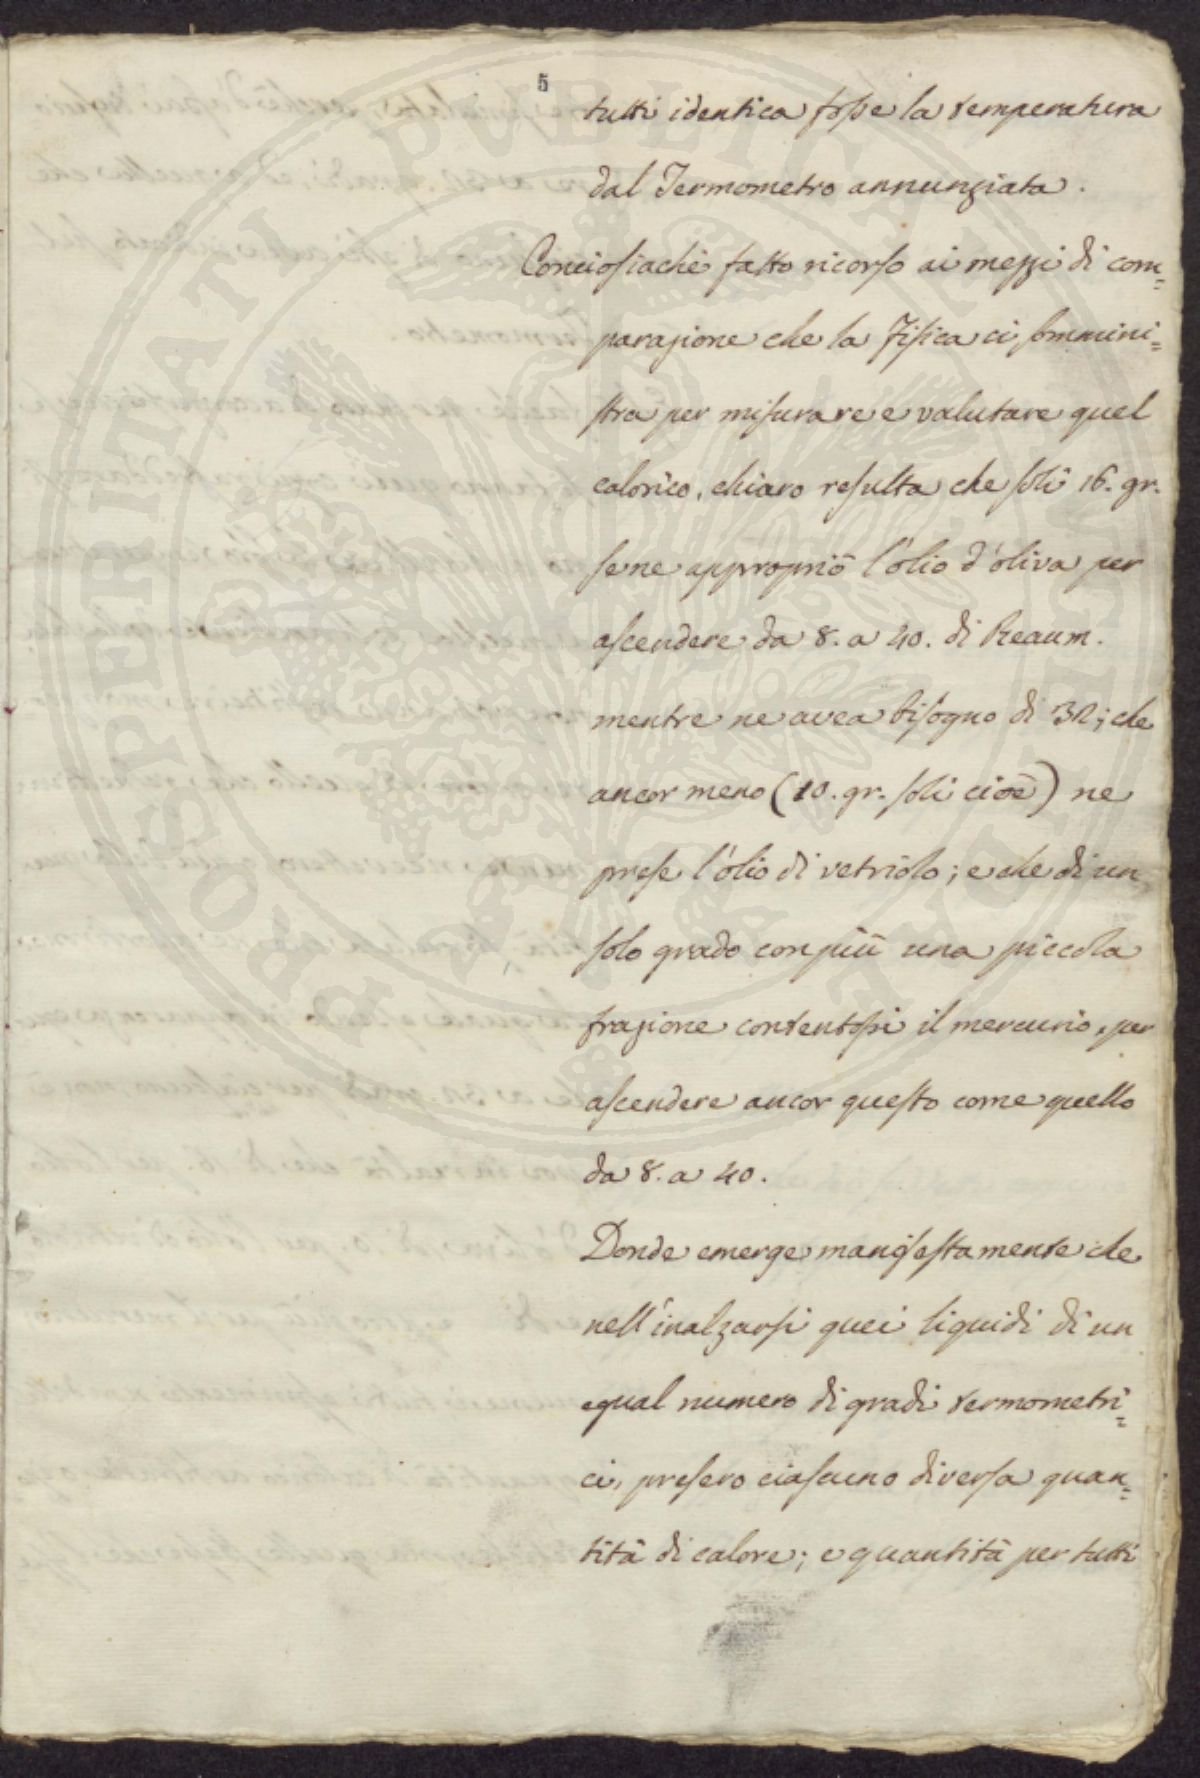 5
tutti identica fosse la temperatura
dal Termometro annunziata.
Conciosiachè fatto ricorso ai mezzi di com=
parazione che la Fisica ci sommini=
stra per misurare e valutare quel
calorico, chiaro resulta che soli 16. gr.
se ne appropriò l'olio d'oliva per
ascendere da 8. a 40. di Reaum.
mentre ne avea bisogno di 32; che
ancor meno (10. gr. soli cioè) ne
prese l'olio di vetriolo; e che di un
solo grado con più una piccola
frazione contentossi il mercurio, per
ascendere ancor questo come quello
da 8. a 40.
Donde emerge manifestamente che
nell'inalzarsi quei liquidi di un
egual numero di gradi termometri=
ci, presero ciascuno diversa quan=
tità di calore; e quantità per tutti
PROSPERITATI PUBLICAE AUGENDAE